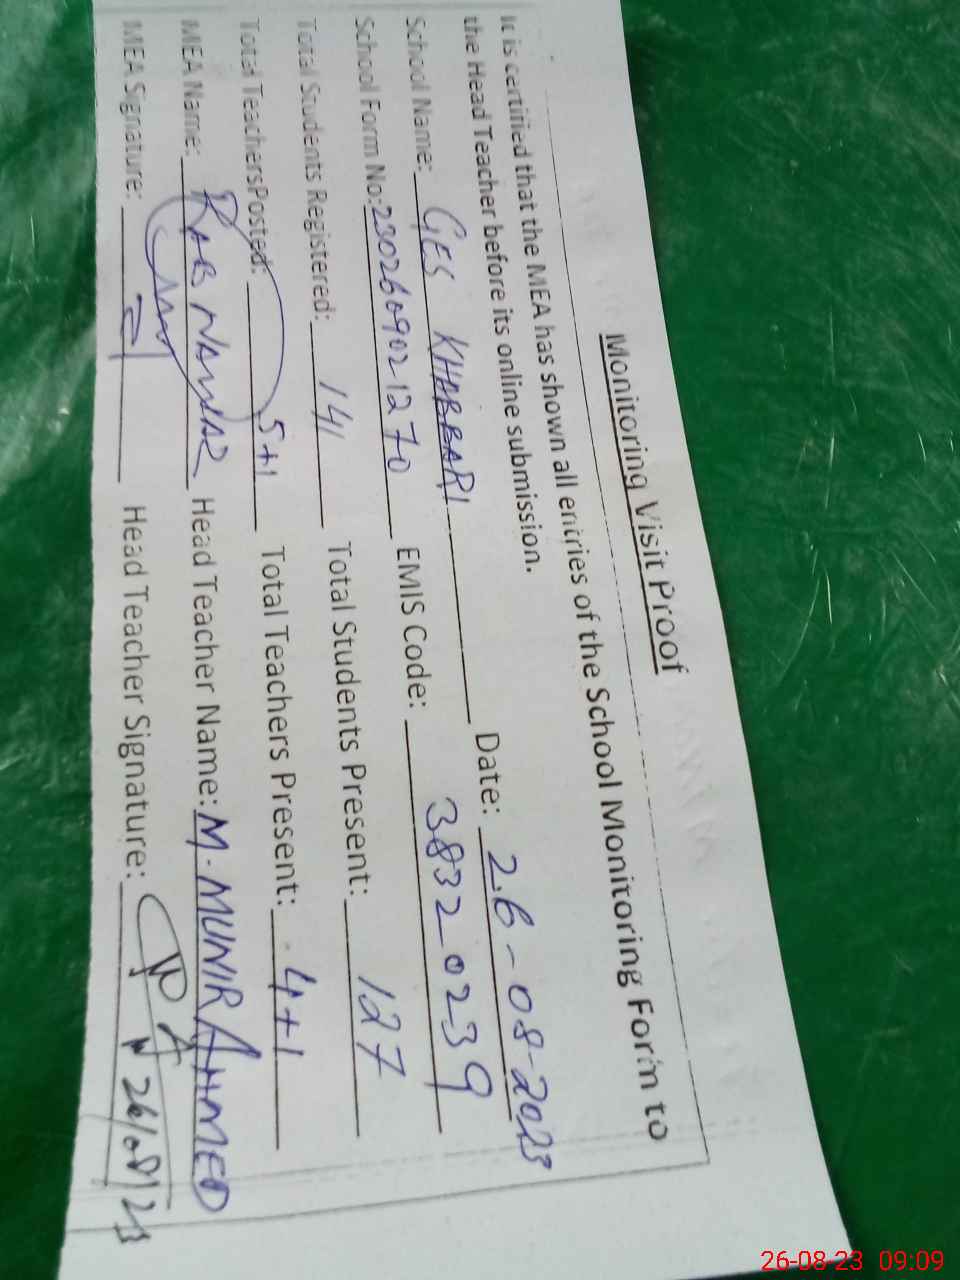 Monitoring Visit Proof
It is certified that the MEA has shown all entries of the School Monitoring Form to
the Head Teacher before its online submission.
School Name: GES KHABBARI Date: 26-08-2023
School Form No: 230260902 1270 EMIS Code: 38320239
Total Students Registered: 141 Total Students Present: 127
Total TeachersPosted: 5+1 Total Teachers Present: 4+1
MEA Name: RAB NAWAZ Head Teacher Name: M. MUNIR AHMED
MEA Signature: Head Teacher Signature:
26/08/23
26-08-23 09:09